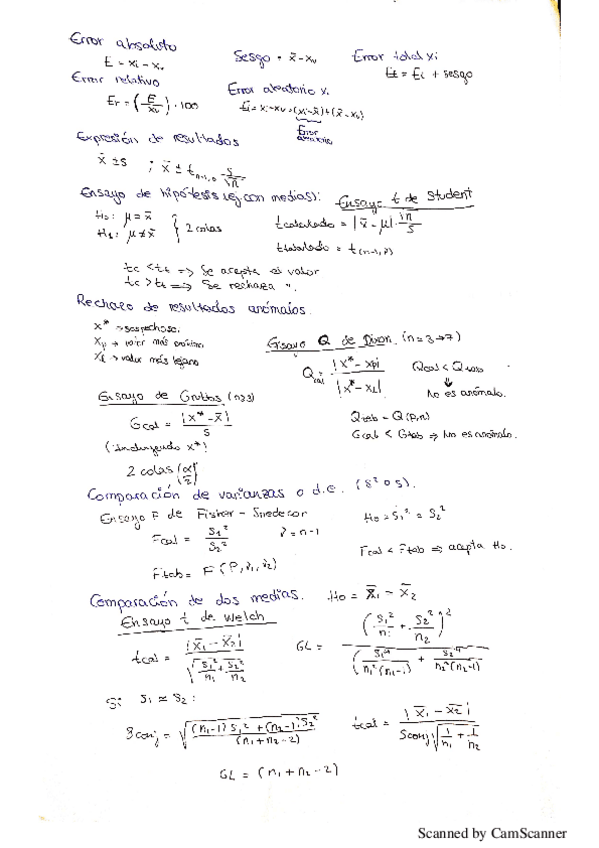 Error absoluto
E = xi - xv
Sesgo = x̄ - xv
Error total xi
Et = Ei + sesgo
Error relativo
Er = (E/xv) · 100
Error aleatorio xi
Ei = xi - xv = (xi - x̄) + (x̄ - xv)
Error aleatorio
Expresión de resultados
x̄ ± s ; x̄ ± t n-1, s/√n
Ensayo de hipótesis (ej con medias):
Ensayo t de Student
H0: μ = x̄
H1: μ ≠ x̄ } 2 colas
tcalculado = |x̄ - μ| · √n/s
ttabulado = t(n-1, )
tc < tt => Se acepta el valor
tc > tt => Se rechaza ".
Rechazo de resultados anómalos.
x* => sospechoso.
=> valor más próximo
xl => valor más lejano
Ensayo Q de Dixon. (n = 3 → 7)
Qcal = |x* - xp| / |x* - xl|
Qcal < Qtab
↓
No es anómalo.
Ensayo de Grubbs (n≥3)
Gcal = |x* - x̄| / s
(incluyendo x*)
2 colas (α/2)
Qtab = Q(P,n)
Gcal < Gtab => No es anómalo.
Comparación de varianzas o d.e. (s² o s).
Ensayo F de Fisher - Snedecor
Fcal = s1²/s2²
ν = n-1
H0 = s1² = s2²
Fcal < Ftab => acepta H0.
Ftab = F(P, ν1, ν2)
Comparación de dos medias. H0 = x̄1 - x̄2
Ensayo t de Welch
tcal = |x̄1 - x̄2| / √(s1²/n1 + s2²/n2)
GL = (s1²/n1 + s2²/n2)² / (s1⁴/(n1²(n1-1)) + s2⁴/(n2²(n2-1)))
Si s1 ≈ s2:
Sconj = √((n1-1)s1² + (n2-1)s2² / (n1+n2-2))
tcal = |x̄1 - x̄2| / Sconj √(1/n1 + 1/n2)
GL = (n1 + n2 - 2)
Scanned by CamScanner